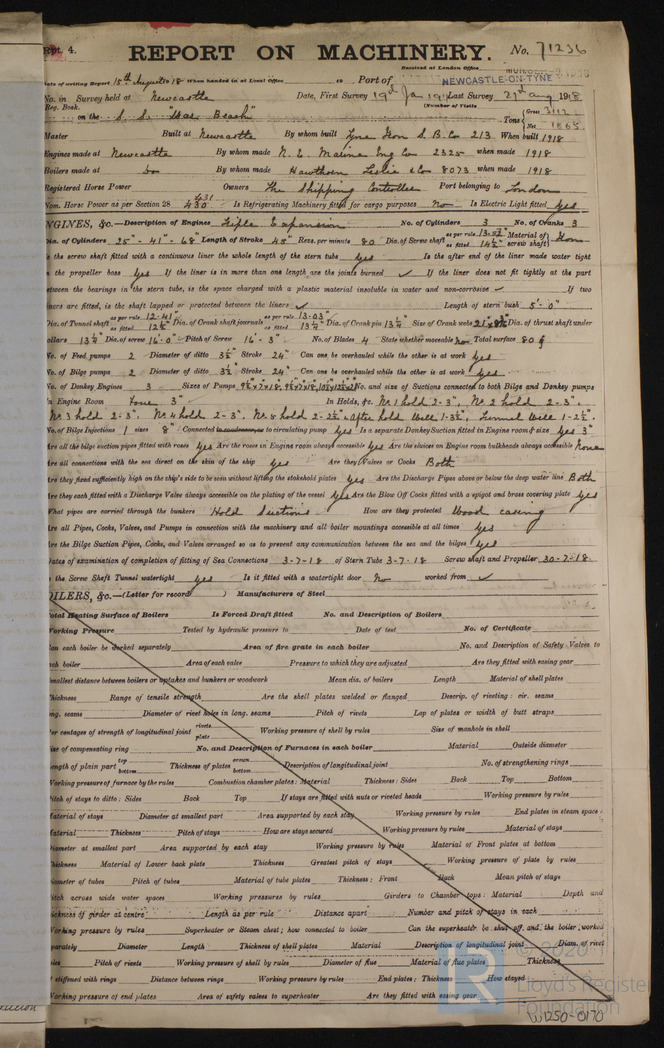 Rpt. 4.
REPORT ON MACHINERY. No. 71236
Received at London Office
Date of writing Report 15th August 1918 When handed in at Local Office 19 Port of NEWCASTLE-ON-TYNE
No. in Survey held at Newcastle Date, First Survey 19th Jan 19 Last Survey 27th Aug 1918
Reg. Book. (Number of Visits
on the S. S. "War Beach" Tons { Gross 3112 Net 1865
Master Built at Newcastle By whom built Tyne Iron S. B. Co 213 When built 1918
Engines made at Newcastle By whom made N. E. Marine Eng Co 2325 when made 1918
Boilers made at Do By whom made Hawthorn Leslie & Co 8073 when made 1918
Registered Horse Power Owners The Shipping Controller Port belonging to London
Nom. Horse Power as per Section 28 430 431 Is Refrigerating Machinery fitted for cargo purposes No Is Electric Light fitted Yes
ENGINES, &c.—Description of Engines Triple Expansion No. of Cylinders 3 No. of Cranks 3
Dia. of Cylinders 25"-41"-68" Length of Stroke 45" Revs. per minute 80 Dia. of Screw shaft as per rule 13.57" as fitted 14½" Material of screw shaft Iron
Is the screw shaft fitted with a continuous liner the whole length of the stern tube Yes Is the after end of the liner made water tight
in the propeller boss Yes If the liner is in more than one length are the joints burned ✓ If the liner does not fit tightly at the part
between the bearings in the stern tube, is the space charged with a plastic material insoluble in water and non-corrosive ✓ If two
liners are fitted, is the shaft lapped or protected between the liners ✓ Length of stern bush 5'-0"
Dia. of Tunnel shaft as per rule 12.41" as fitted 12½" Dia. of Crank shaft journals as per rule 13.03" as fitted 13¼" Dia. of Crank pin 13¼" Size of Crank webs Dia. of thrust shaft under
collars 13¼" Dia. of screw 16'-0" Pitch of Screw 16'-3" No. of Blades 4 State whether moveable No Total surface 80 ϕ
No. of Feed pumps 2 Diameter of ditto 3½" Stroke 24" Can one be overhauled while the other is at work Yes
No. of Bilge pumps 2 Diameter of ditto 3½" Stroke 24" Can one be overhauled while the other is at work Yes
No. of Donkey Engines 3 Sizes of Pumps No. and size of Suctions connected to both Bilge and Donkey pumps
In Engine Room Four 3" In Holds, &c. No 1 hold 2-3", No 2 hold 2-3".
No 3 hold 2-3". No 4 hold 2-3". No 5 hold 2-2½" & After hold Well 1-3½", Tunnel Well 1-2½".
No. of Bilge Injections 1 sizes 8" Connected to condenser, or to circulating pump Yes Is a separate Donkey Suction fitted in Engine room & size Yes 3"
Are all the bilge suction pipes fitted with roses Yes Are the roses in Engine room always accessible Yes Are the sluices on Engine room bulkheads always accessible None
Are all connections with the sea direct on the skin of the ship Yes Are they Valves or Cocks Both
Are they fixed sufficiently high on the ship's side to be seen without lifting the stokehold plates Yes Are the Discharge Pipes above or below the deep water line Both
Are they each fitted with a Discharge Valve always accessible on the plating of the vessel Yes Are the Blow Off Cocks fitted with a spigot and brass covering plate Yes
What pipes are carried through the bunkers Hold Suctions How are they protected Wood casing
Are all Pipes, Cocks, Valves, and Pumps in connection with the machinery and all boiler mountings accessible at all times Yes
Are the Bilge Suction Pipes, Cocks, and Valves arranged so as to prevent any communication between the sea and the bilges Yes
Dates of examination of completion of fitting of Sea Connections 3-7-18 of Stern Tube 3-7-18 Screw shaft and Propeller 30-7-18
Is the Screw Shaft Tunnel watertight Yes Is it fitted with a watertight door No worked from ✓
BOILERS, &c.—(Letter for record ) Manufacturers of Steel
Total Heating Surface of Boilers Is Forced Draft fitted No. and Description of Boilers
Working Pressure Tested by hydraulic pressure to Date of test No. of Certificate
Can each boiler be worked separately Area of fire grate in each boiler No. and Description of Safety Valves to
each boiler Area of each valve Pressure to which they are adjusted Are they fitted with easing gear
Smallest distance between boilers or uptakes and bunkers or woodwork Mean dia. of boilers Length Material of shell plates
Thickness Range of tensile strength Are the shell plates welded or flanged Descrip. of riveting: cir. seams
long. seams Diameter of rivet holes in long. seams Pitch of rivets Lap of plates or width of butt straps
Per centages of strength of longitudinal joint rivets plate Working pressure of shell by rules Size of manhole in shell
Size of compensating ring No. and Description of Furnaces in each boiler Material Outside diameter
Length of plain part top bottom Thickness of plates crown bottom Description of longitudinal joint No. of strengthening rings
Working pressure of furnace by the rules Combustion chamber plates: Material Thickness: Sides Back Top Bottom
Pitch of stays to ditto: Sides Back Top If stays are fitted with nuts or riveted heads Working pressure by rules
Material of stays Diameter at smallest part Area supported by each stay Working pressure by rules End plates in steam space:
Material Thickness Pitch of stays How are stays secured Working pressure by rules Material of stays
Diameter at smallest part Area supported by each stay Working pressure by rules Material of Front plates at bottom
Thickness Material of Lower back plate Thickness Greatest pitch of stays Working pressure of plate by rules
Diameter of tubes Pitch of tubes Material of tube plates Thickness: Front Back Mean pitch of stays
Pitch across wide water spaces Working pressures by rules Girders to Chamber tops: Material Depth and
thickness of girder at centre Length as per rule Distance apart Number and pitch of stays in each
Working pressure by rules Superheater or Steam chest; how connected to boiler Can the superheater be shut off and the boiler worked
separately Diameter Length Thickness of shell plates Material Description of longitudinal joint Diam. of rivet
holes Pitch of rivets Working pressure of shell by rules Diameter of flue Material of flue plates Thickness
If stiffened with rings Distance between rings Working pressure by rules End plates: Thickness How stayed
Working pressure of end plates Area of safety valves to superheater Are they fitted with easing gear
© 2020
Lloyd's Register
Foundation
W1250-0170